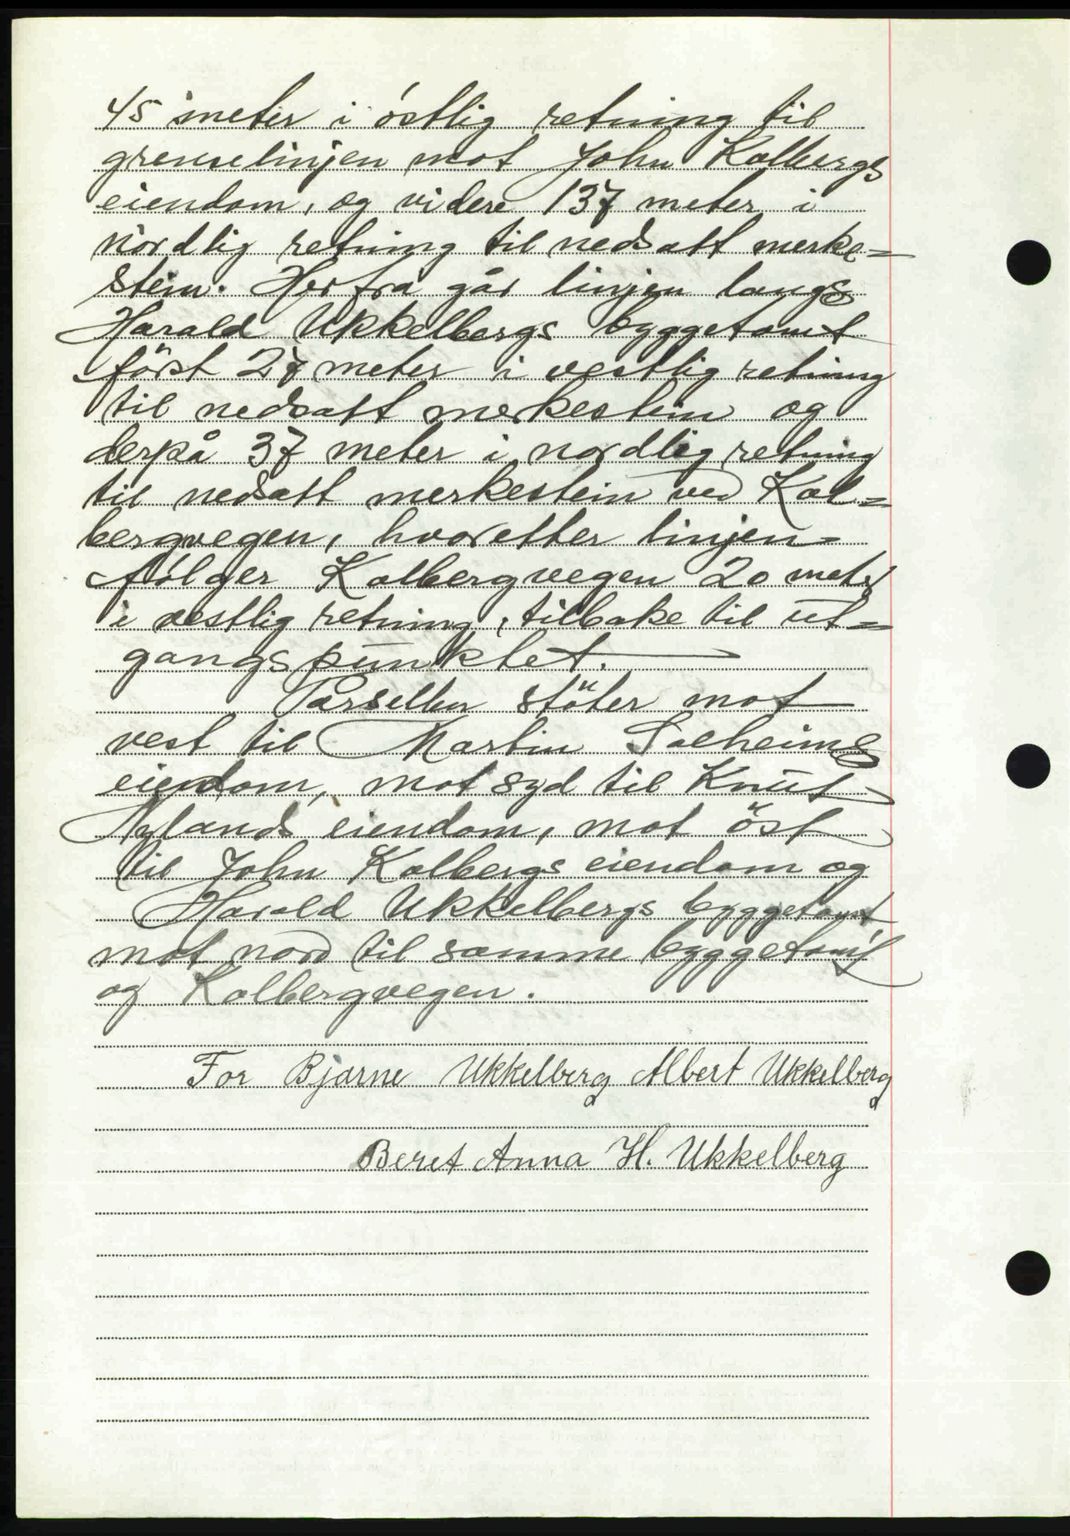 45 meter i östlig retning til
grenselinjen mot John Kolbergs
eiendom, og videre 137 meter i
nordlig retning til nedsatt merke=
stein. Herfra går linjen langs
Harald Ukkelbergs byggetomt
först 27 meter i vestlig retning
til nedsatt merkestein og
derpå 37 meter i nordlig retning
til nedsatt merkestein ved Kol=
bergvegen, hvoretter linjen
fölger Kolbergvegen 20 meter
i vestlig retning, tilbake til ut=
gangspunktet.
Parsellen stöter mot
vest til Martin Solheims
eiendom, mot syd til Knut
Nylands eiendom, mot öst
til John Kolbergs eiendom og
Harald Ukkelbergs byggetomt
mot nord til samme byggetomt
og Kolbergvegen.
For Bjarne Ukkelberg Albert Ukkelberg
Beret Anna H. Ukkelberg